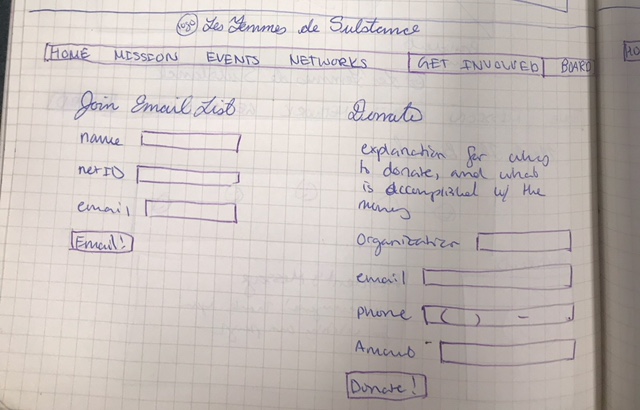 logo Les Femmes de Substance
HOME MISSION EVENTS NETWORKS GET INVOLVED BOARD
HO
Join Email List
name
netID
email
Email!
Donate
explanation for why
to donate, and what
is accomplished w/ the
money
Organization
email
phone ( ) -
Amount
Donate!